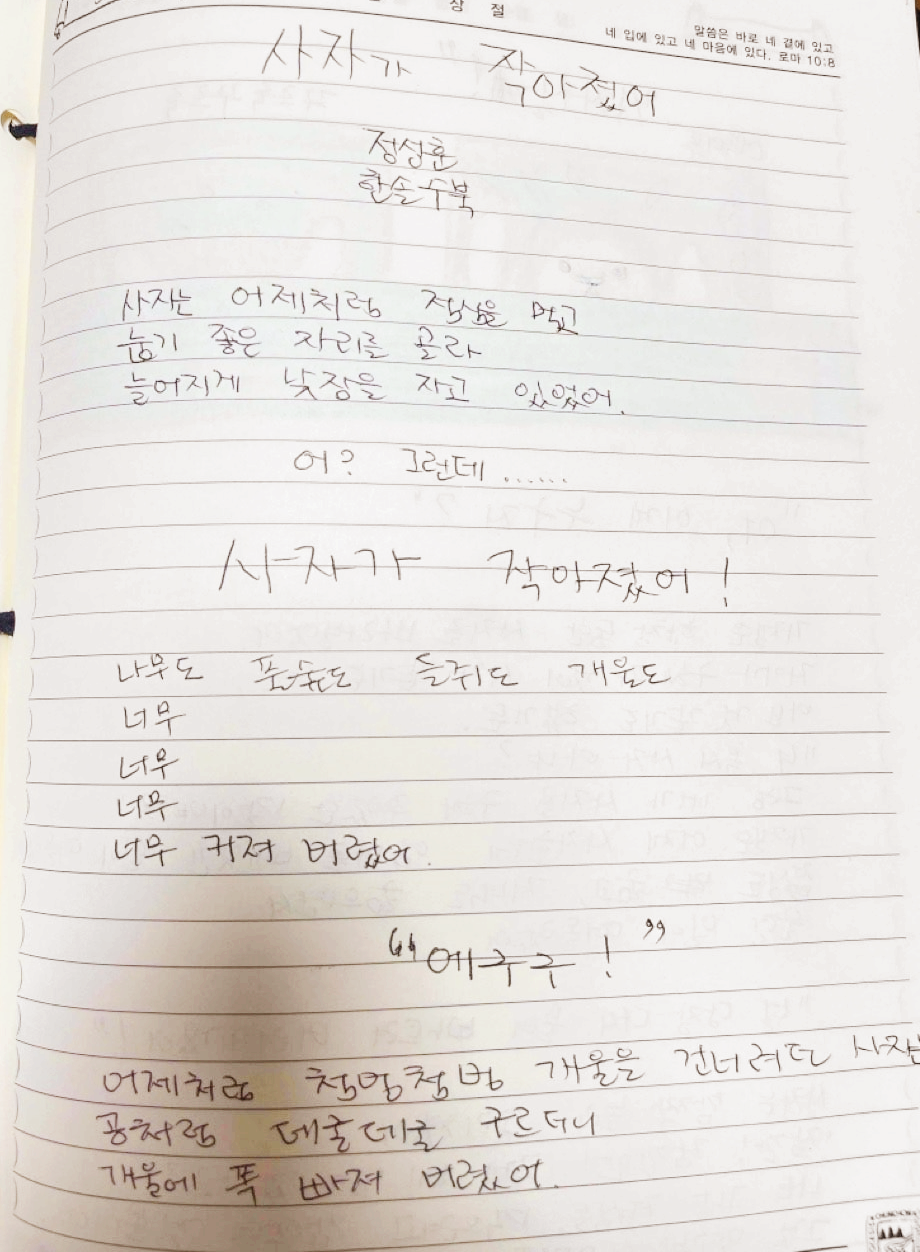 상 절
말씀은 바로 네 곁에 있고
네 입에 있고 네 마음에 있다. 로마 10:8
사자가 작아졌어
정성훈
한솔수북
사자는 어제처럼 점심을 먹고
눕기 좋은 자리를 골라
늘어지게 낮잠을 자고 있었어.
어? 그런데 ......
사자가 작아졌어!
나무도 풀숲도 들쥐도 개울도
너무
너무
너무
너무 커져 버렸어.
“에구구!”
어제처럼 첨벙첨벙 개울을 건너려던 사자는
공처럼 데굴데굴 구르더니
개울에 폭 빠져 버렸어.